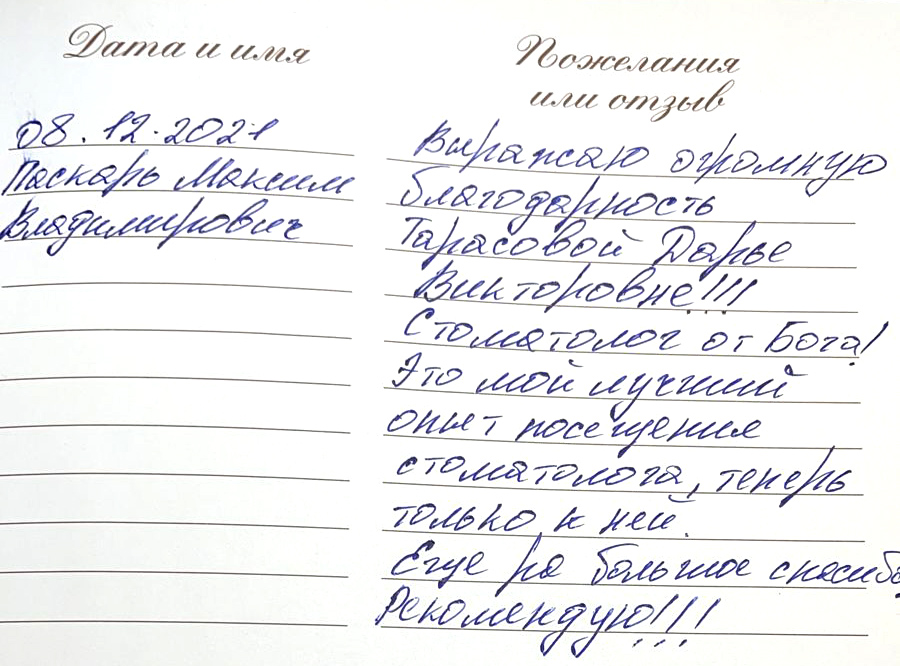 Дата и имя
08.12.2021
Паскарь Максим
Владимирович
Пожелания
или отзыв
Выражаю огромную
благодарность
Тарасовой Дарье
Викторовне!!!
Стоматолог от Бога!
Это мой лучший
опыт посещения
стоматолога, теперь
только к ней.
Еще ра большое спасибо
Рекомендую!!!